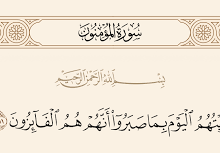 سُورَةُ المُؤْمِنُونَ
بِسْمِ اللَّهِ الرَّحْمَٰنِ الرَّحِيمِ
الْيَوْمَ بِمَا صَبَرُوا أَنَّهُمْ هُمُ الْفَائِزُونَ